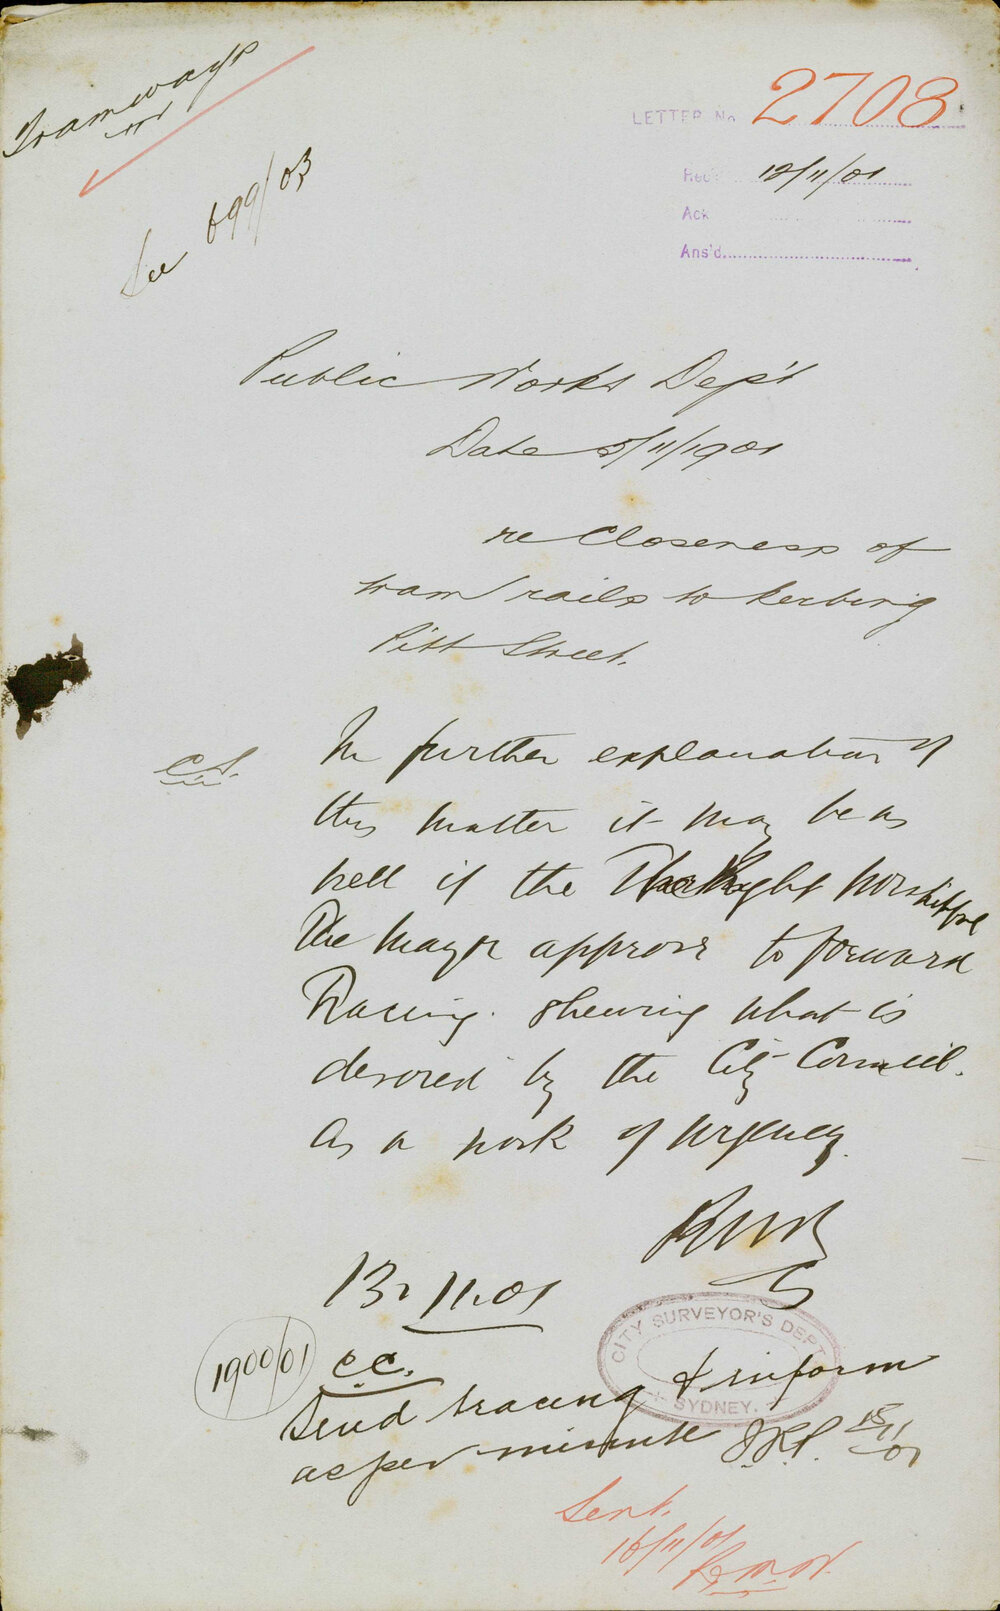 Tramways
LETTER No 2708
Rec'd 12/11/01
Ack
Ans'd
See 699/03
Public Works Dep't
Date 5/11/1901
re Closeness of
tram rails to kerbing
Pitt Street.
C.S.
In further explanation of
this matter it may be as
well if the Right Worshipful
The Mayor approve to forward
Tracing. Shewing what is
desired by the City Council.
As a work of urgency.
13.11.01
CITY SURVEYOR'S DEPT
SYDNEY.
1900/01
C.C.
Send tracing & inform
as per minute
15/11/01
Sent.
16/11/01